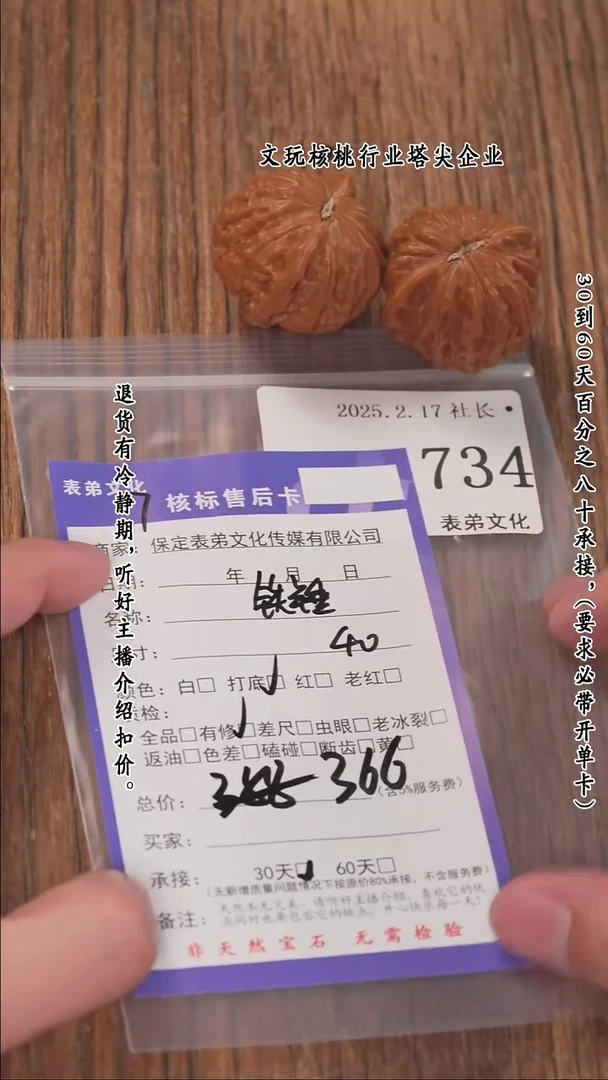 文玩核桃行业塔尖企业
30到60天百分之八十承接，（要求必带开单卡）
退货有冷静期，听好主播介绍扣价。
2025.2.17 社长
734
表弟文化
表弟文化
核标售后卡
商家： 保定表弟文化传媒有限公司
日期： 年 月 日
名称： 铁锤
尺寸： 40
颜色：白□ 打底☑ 红□ 老红□
质检：
全品□有修☑差尺□虫眼□老冰裂□
返油□色差□磕碰□断齿□黄□
总价： 366 （含5%服务费）
买家：
承接： 30天☑ 60天□
（无新增质量问题情况下按原价80%承接，不含服务费）
备注： 天然本无完美，请听好主播介绍，喜欢它的优
点同时也要包容它的缺点，开心快乐每一天！
非天然宝石 无需检验